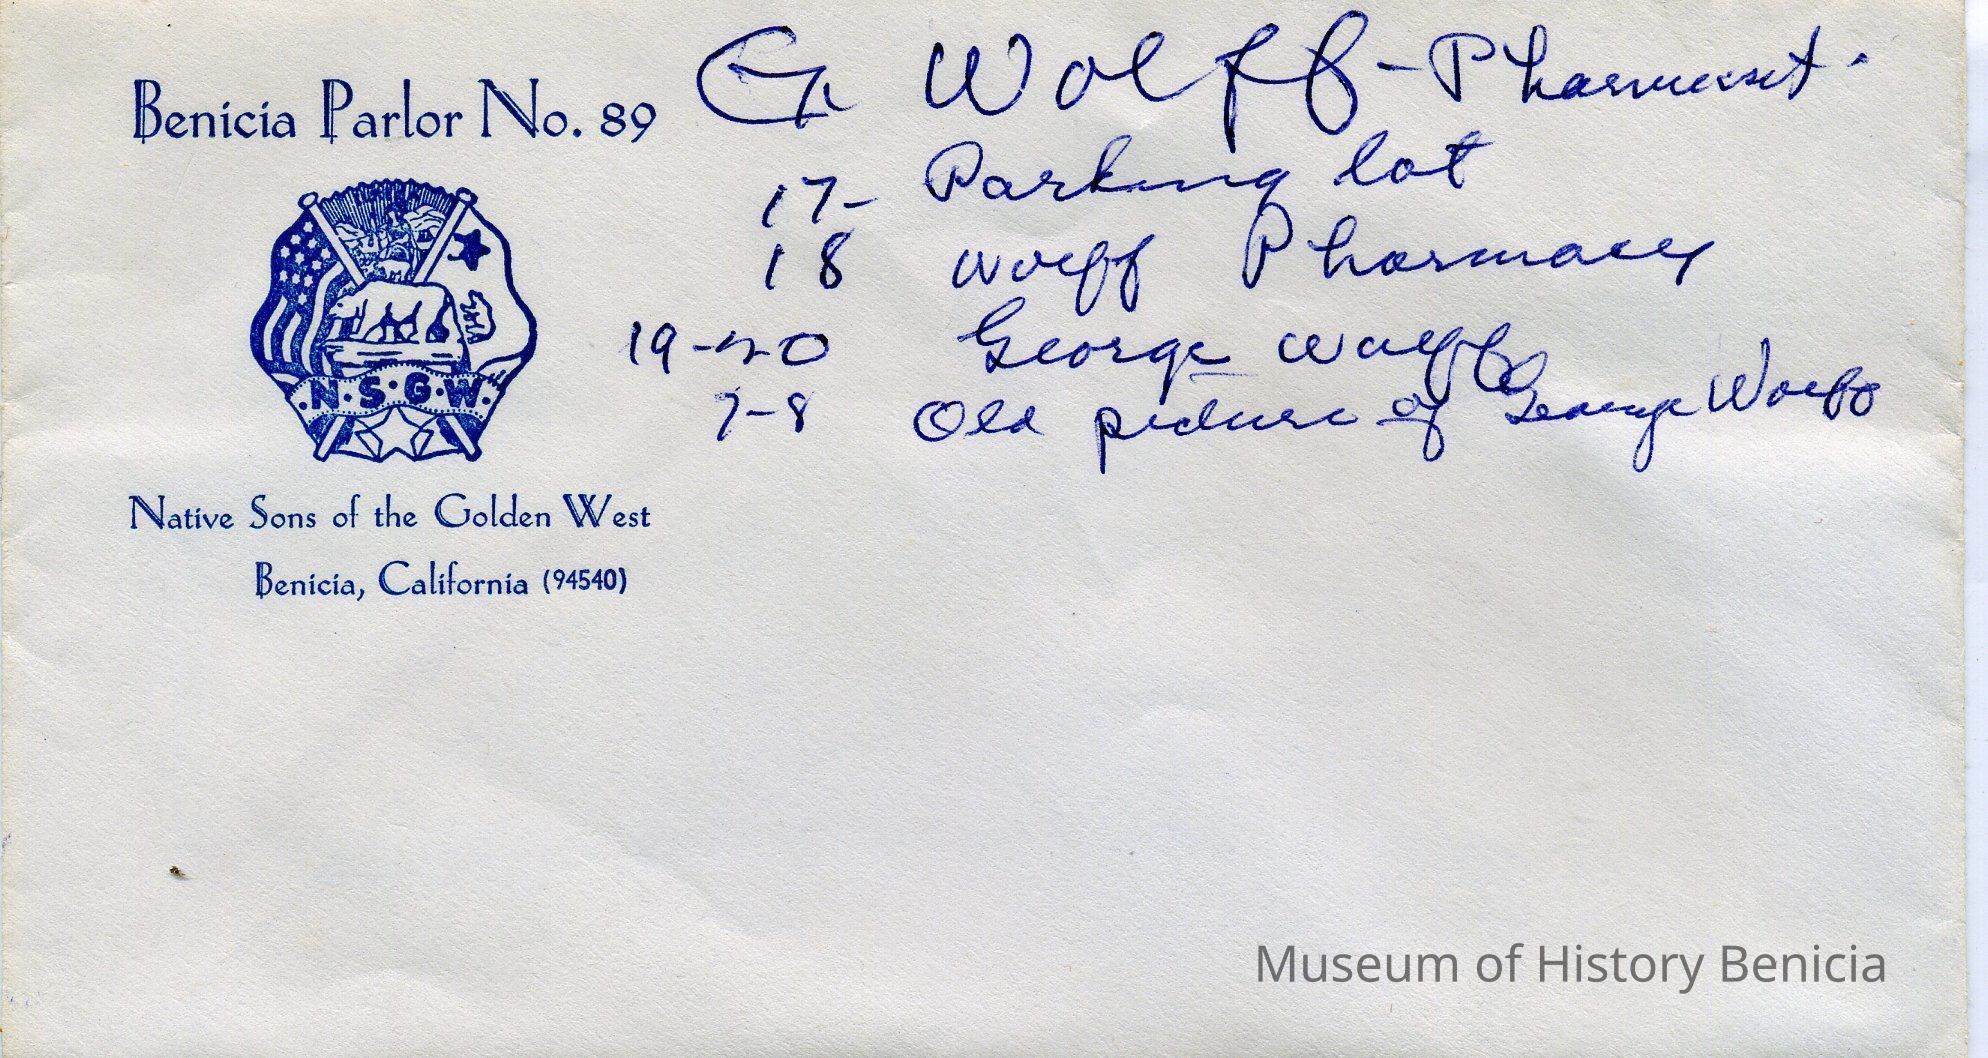 Benicia Parlor No. 89
N·S·G·W.
Native Sons of the Golden West
Benicia, California (94540)
G. Wolff - Pharmacist.
17- Parking lot
18 Wolff Pharmacy
19-20 George Wolff
7-8 Old picture of George Wolff
Museum of History Benicia